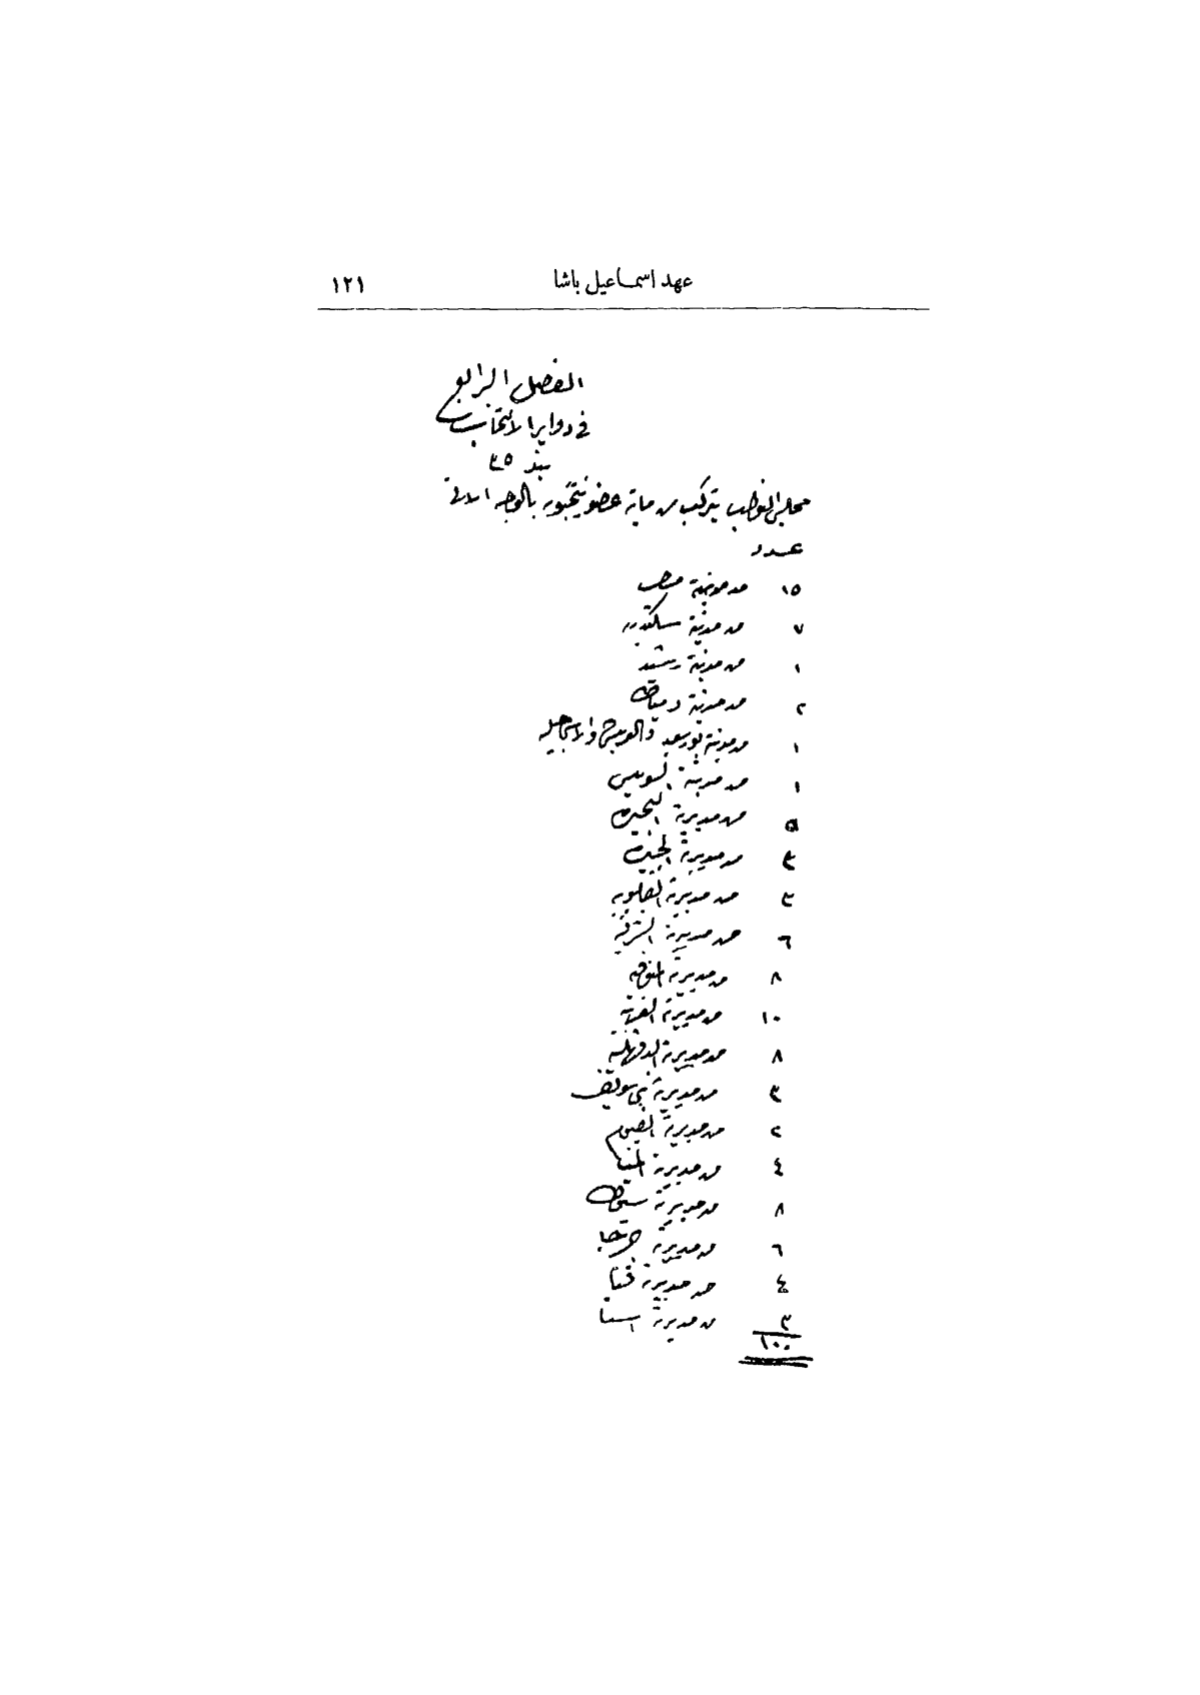 عهد اسماعيل باشا ١٢١
الفصل الرابع
في دواير الانتخاب
بند ٣٥
مجلس النواب يتركب من ماية عضو ينتخبون بالوجه الاتي
عدد
١٥ من مدينة مصر
٧ من مدينة سكندريه
١ من مدينة رشيد
٢ من مدينة دمياط
١ من مدينة بورسعيد والعريش والاسماعيليه
١ من مدينة السويس
٥ من مديرية البحيرة
٣ من مديرية الجيزة
٣ من مديرية القليوبيه
٦ من مديرية الشرقية
٨ من مديرية المنوفيه
١٠ من مديرية الغربية
٨ من مديرية الدقهلية
٣ من مديرية بني سويف
٢ من مديرية الفيوم
٤ من مديرية المنيا
٨ من مديرية سيوط
٦ من مديرية جرجا
٤ من مديرية قنا
٣ من مديرية اسنا
١٠٠